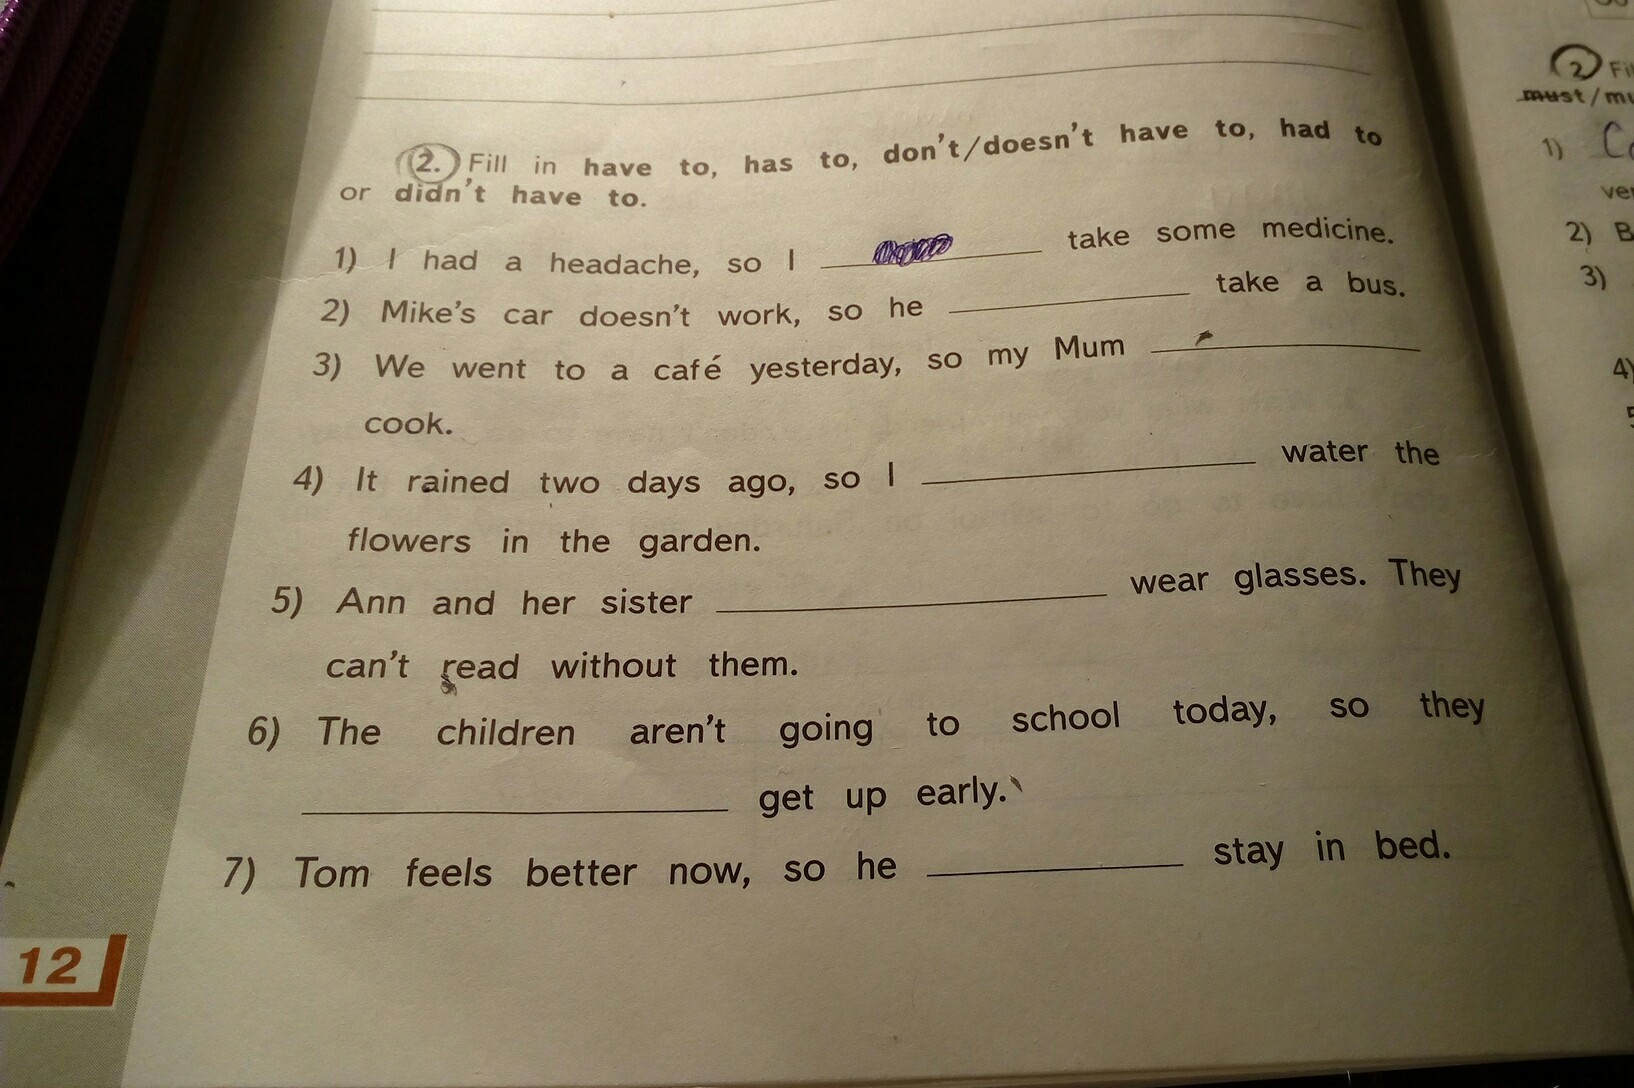 2. Fill in have to, has to, don't/doesn't have to, had to
or didn't have to.
1) I had a headache, so I ___ take some medicine.
2) Mike's car doesn't work, so he ___ take a bus.
3) We went to a café yesterday, so my Mum ___
cook.
4) It rained two days ago, so I ___ water the
flowers in the garden.
5) Ann and her sister ___ wear glasses. They
can't read without them.
6) The children aren't going to school today, so they
___ get up early.
7) Tom feels better now, so he ___ stay in bed.
12
2
must/
1)
2)
3)
4)